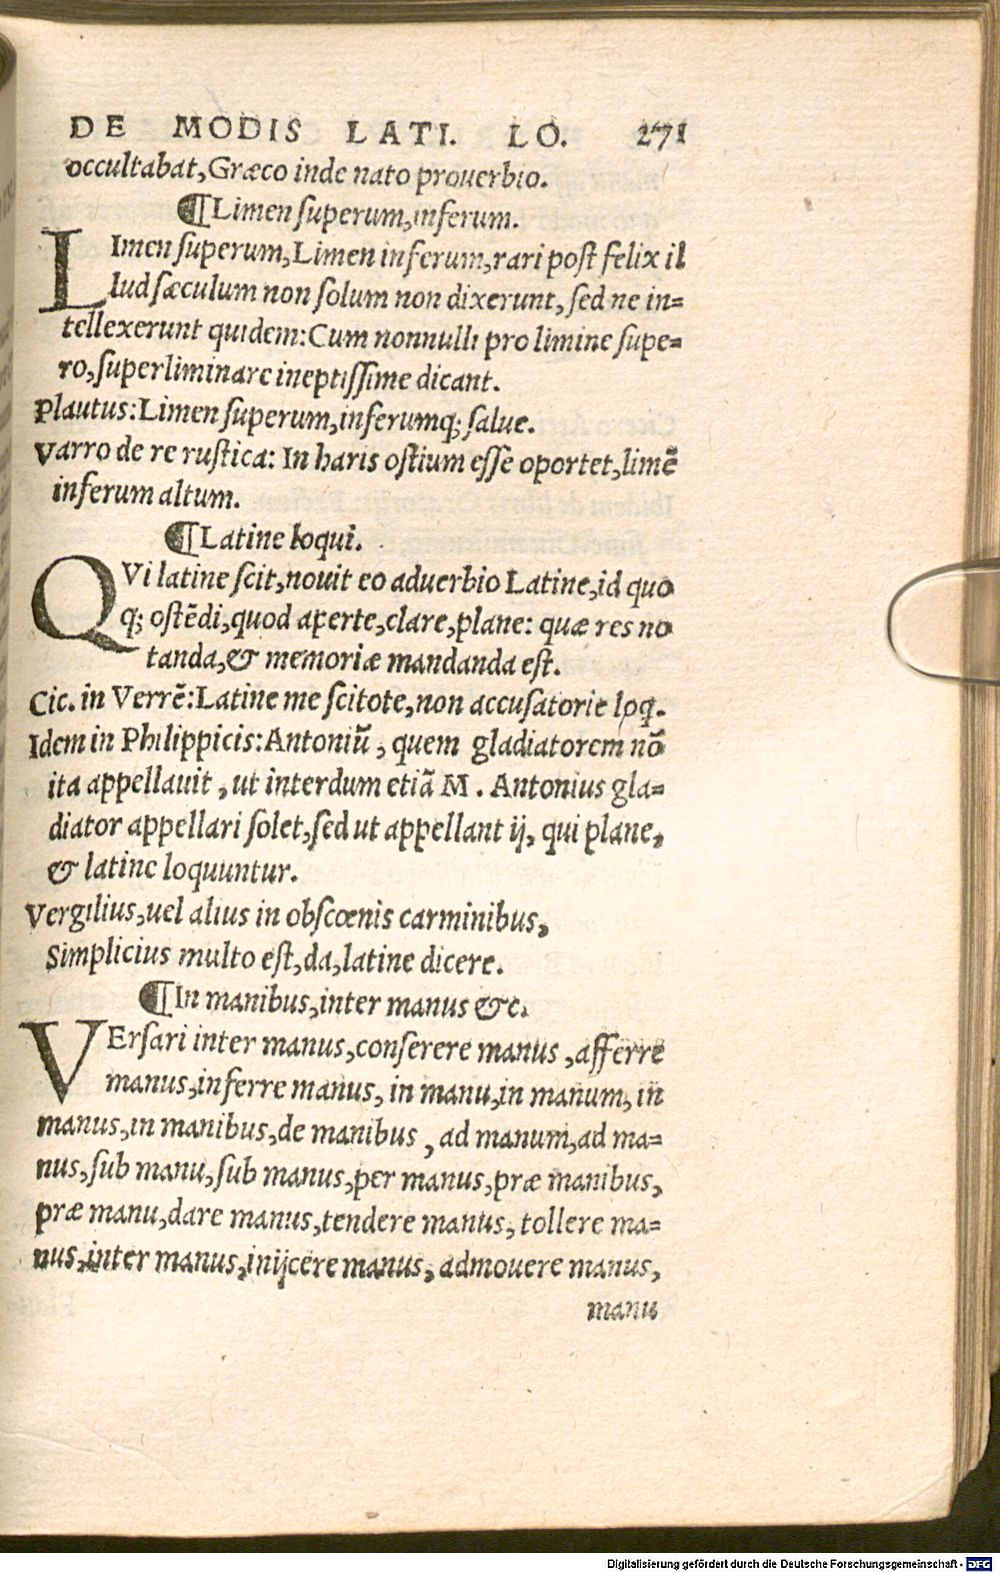 DE MODIS LATI. LO. 271
occultabat, Græco inde nato prouerbio.
¶ Limen superum, inferum.
LImen superum, Limen inferum, rari post felix il
lud sæculum non solum non dixerunt, sed ne in=
tellexerunt quidem: Cum nonnulli pro limine supe=
ro, superliminare ineptissime dicant.
Plautus: Limen superum, inferumq; salue.
Varro de re rustica: In haris ostium esse oportet, limẽ
inferum altum.
¶ Latine loqui.
QVi latine scit, nouit eo aduerbio Latine, id quo
q; ostẽdi, quod aperte, clare, plane: quæ res no
tanda, & memoriæ mandanda est.
Cic. in Verrẽ: Latine me scitote, non accusatorie loq.
Idem in Philippicis: Antoniũ, quem gladiatorem nõ
ita appellauit, ut interdum etiã M. Antonius gla=
diator appellari solet, sed ut appellant ij, qui plane,
& latine loquuntur.
Vergilius, uel alius in obscœnis carminibus,
Simplicius multo est, da, latine dicere.
¶ In manibus, inter manus &c.
VErsari inter manus, conserere manus, afferre
manus, inferre manus, in manu, in manum, in
manus, in manibus, de manibus, ad manum, ad ma=
nus, sub manu, sub manus, per manus, præ manibus,
præ manu, dare manus, tendere manus, tollere ma=
nus, inter manus, inijcere manus, admouere manus,
manu
Digitalisierung gefördert durch die Deutsche Forschungsgemeinschaft - DFG